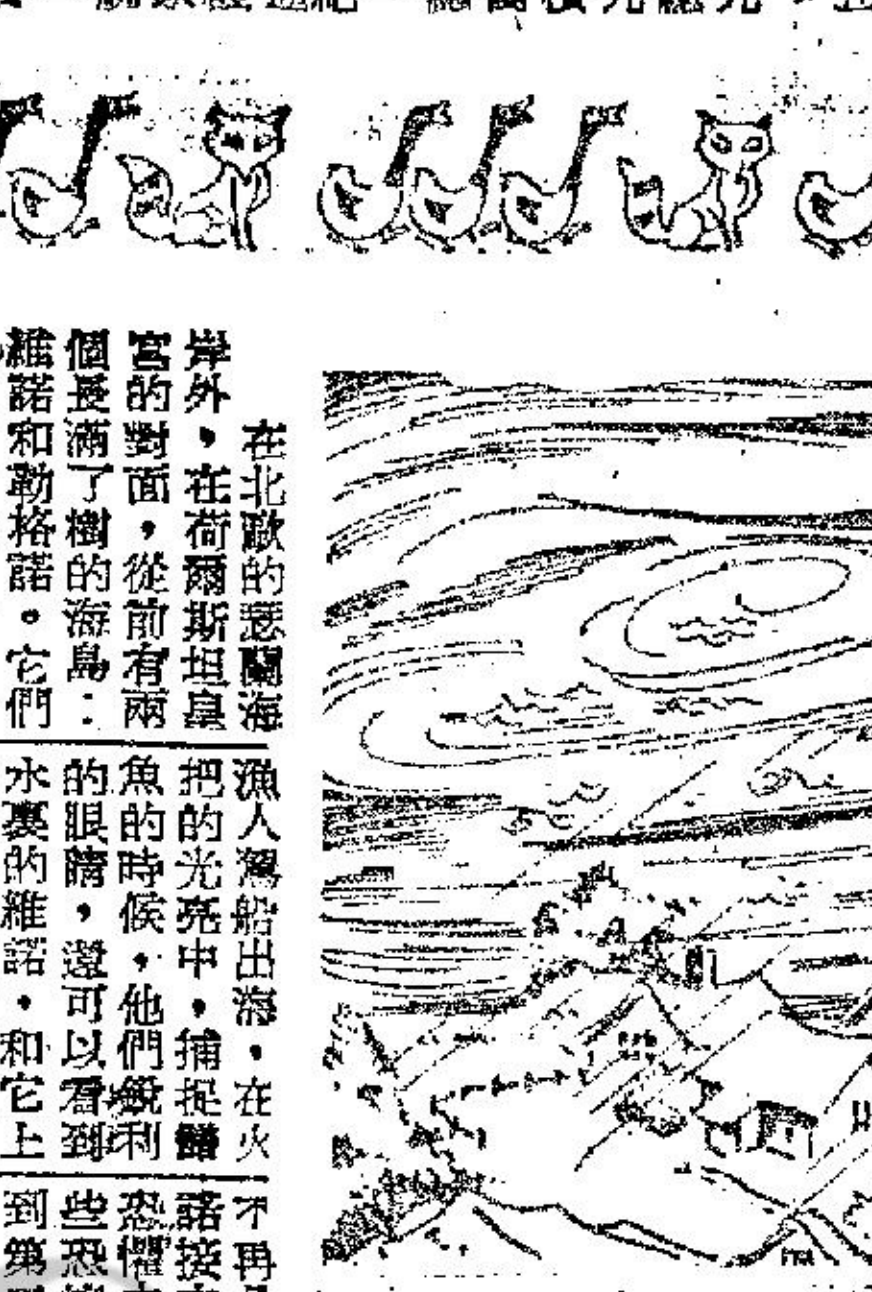 在北歐的瑟蘭海
岸外，在荷爾斯坦皇
宮的對面，從前有兩
個長滿了樹的海島：
維諾和勒格諾。它們
漁人駕船出海，在火
把的光亮中，捕捉鱔
魚的時候，他們銳利
的眼睛，還可以看到
水裏的維諾，和它上
不再
諾接
恐懼
些恐
到第